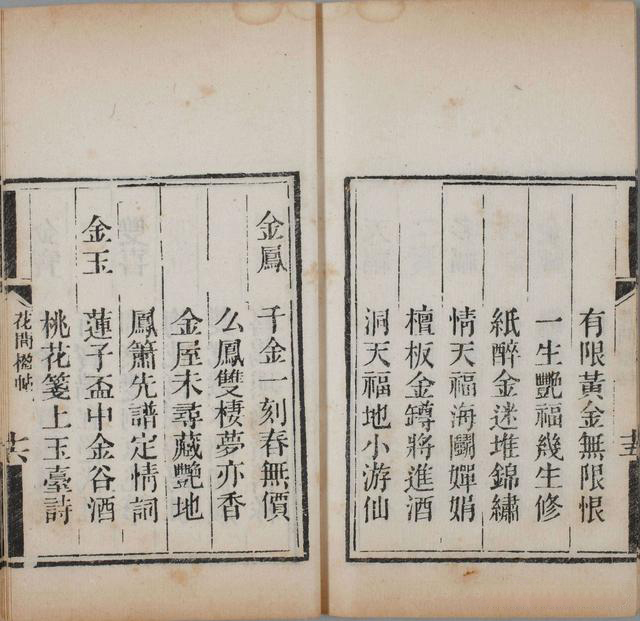 有限黃金無限恨
一生艷福幾生修
紙醉金迷堆錦繡
情天福海鬭嬋娟
檀板金罇將進酒
洞天福地小游仙
金鳳
千金一刻春無價
么鳳雙棲夢亦香
金屋未尋藏艷地
鳳簫先譜定情詞
金玉
蓮子盃中金谷酒
桃花箋上玉臺詩
花間楹帖
十六